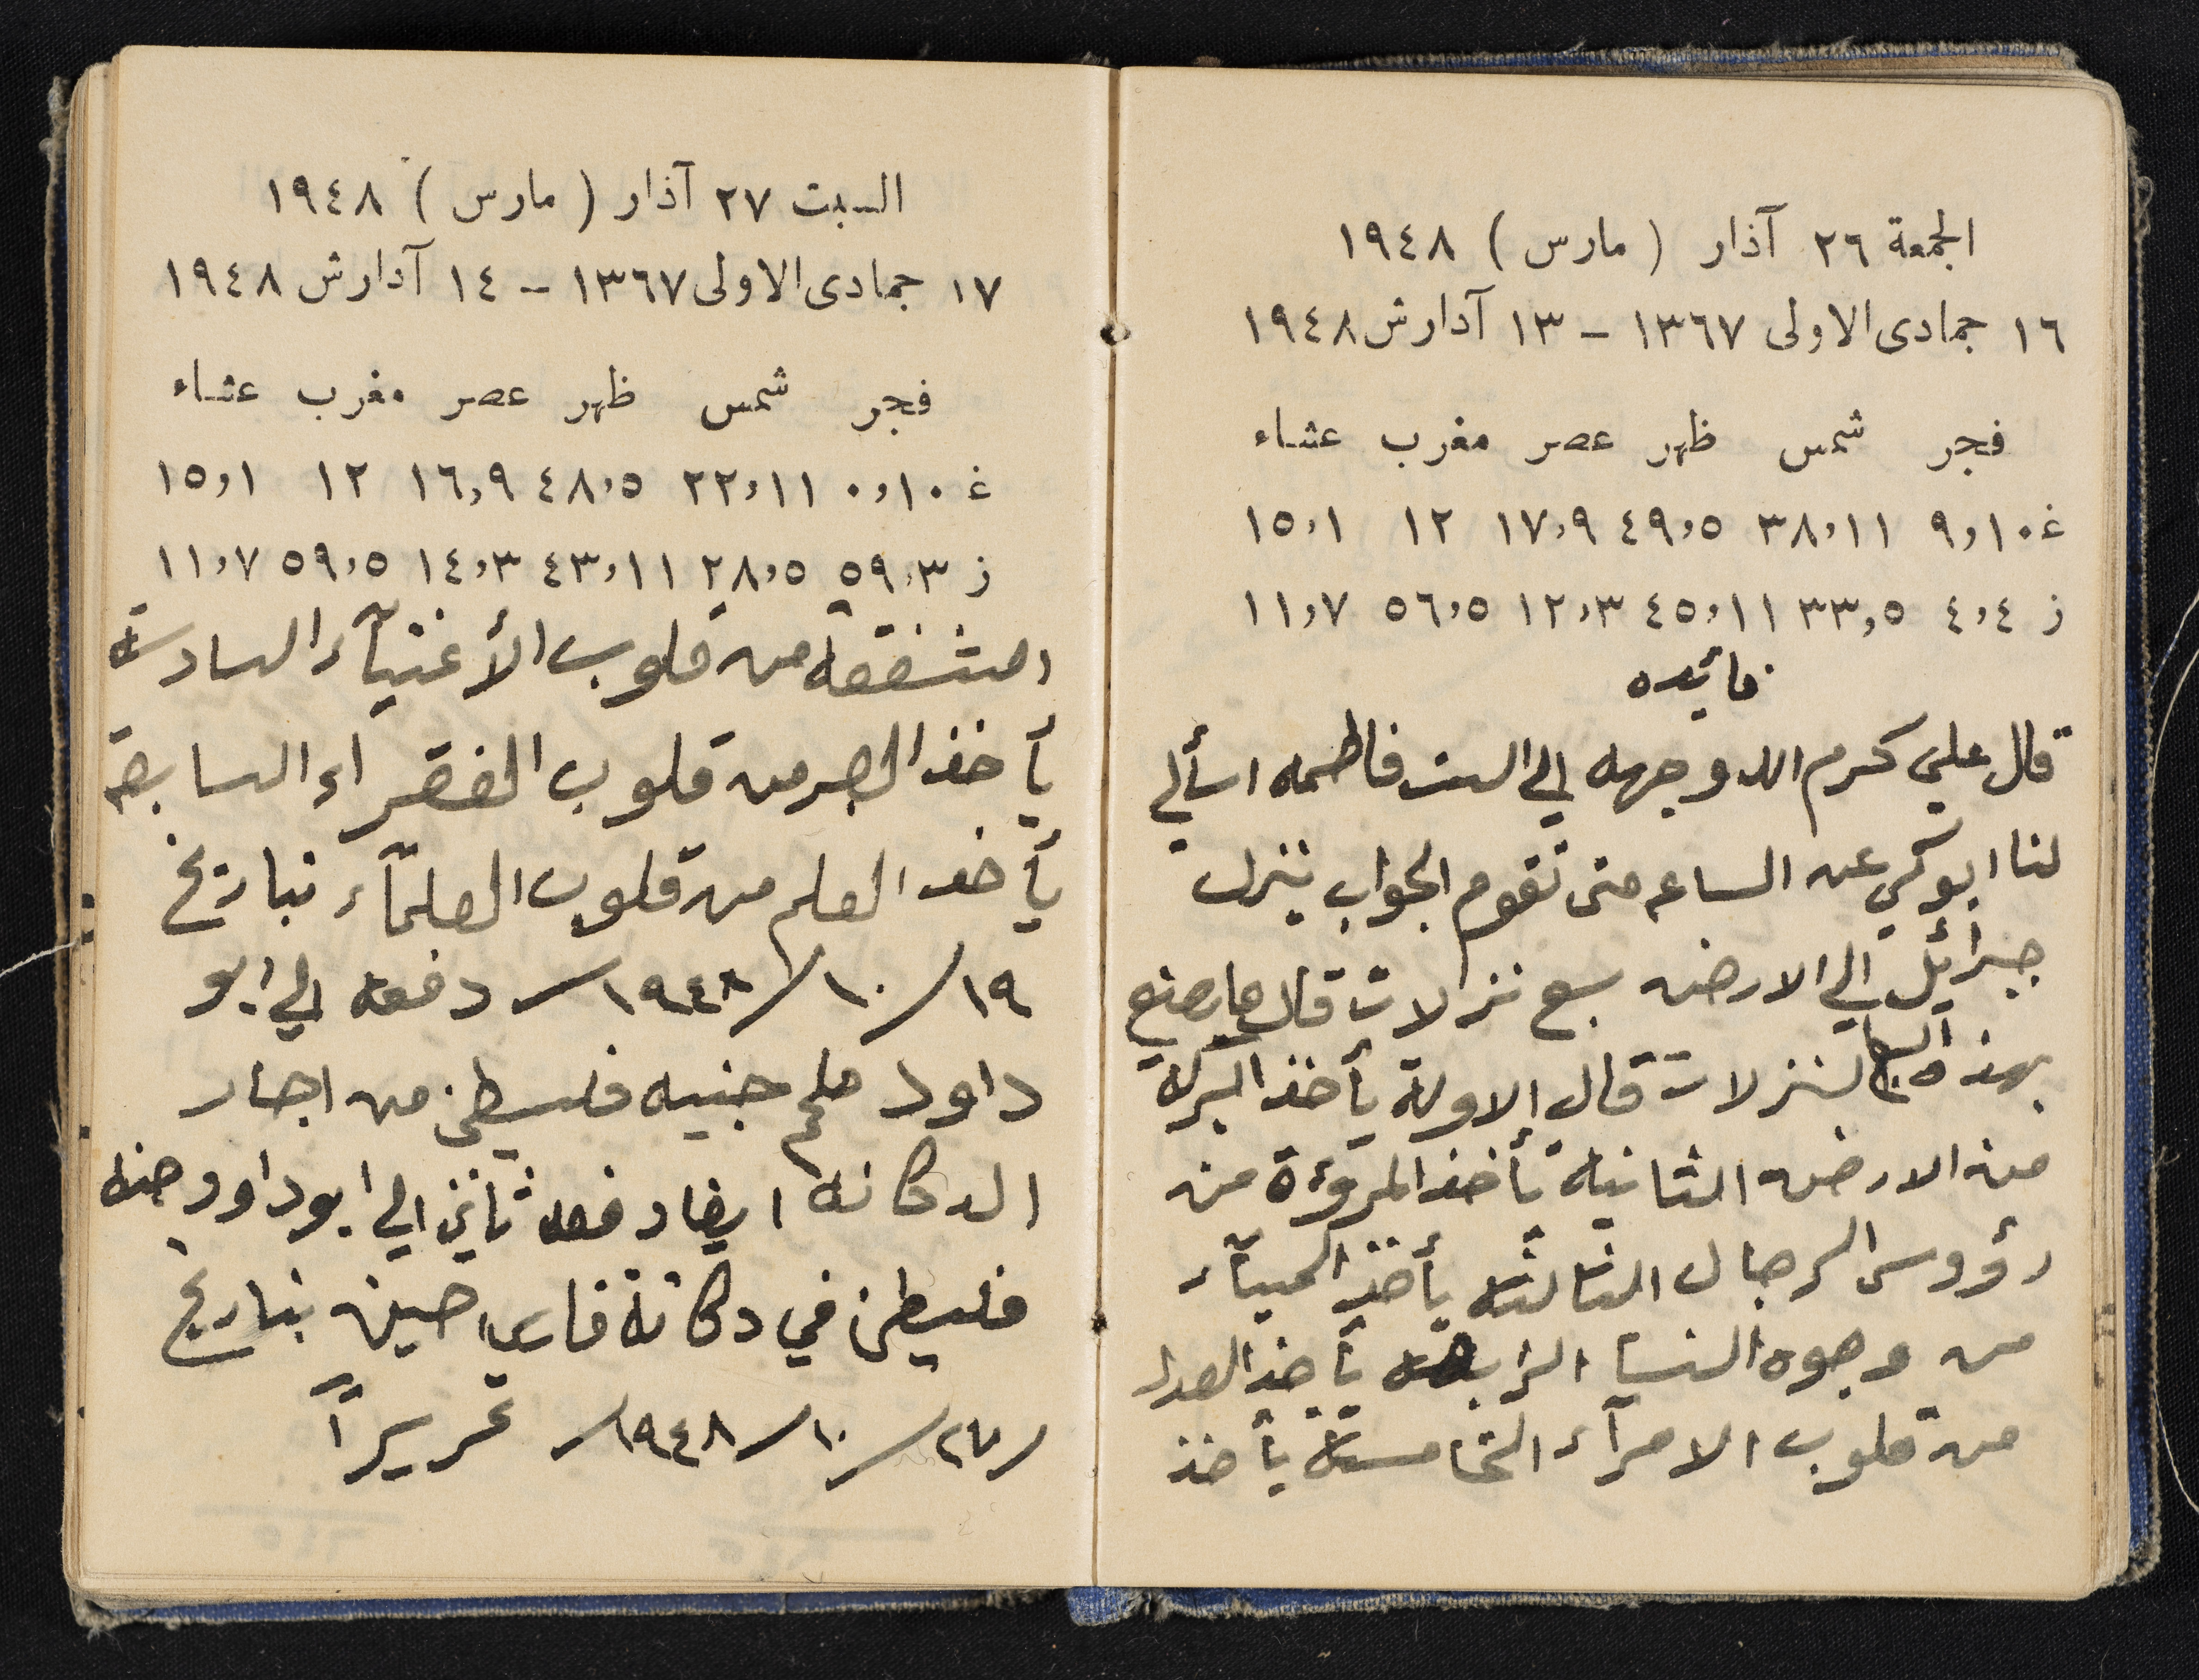 الجمعة ٢٦ آذار ( مارس ) ١٩٤٨
١٦ جمادى الاولى ١٣٦٧ - ١٣ آدارش ١٩٤٨
فجر شمس ظهر عصر مغرب عشاء
غ ٩,١٠ ٣٨,١١ ٤٩,٥ ١٧,٩ ١٢ ١٥,١
ز ٤,٤ ٣٣,٥ ٤٥,١١ ١٢,٣ ٥٦,٥ ١١,٧
فائيده
قال علي كرم الله وجهه الي الست فاطمه اسألي
لنا ابوكي عن الساعه متى تقوم الجواب ينزل
جبرائيل الي الارض سبع نزلات قال ما يصنع
بهذه السبع لنزلات قال الاولة يأخذ البركة
من الارض الثانية يأخذ المروءة من
رؤوس الرجال الثالثه يأخذ الحيآء
من وجوه النسا الرابعه يأخذ العدل
من قلوب الامرآء الخامسة يأخذ
السبت ٢٧ آذار ( مارس ) ١٩٤٨
١٧ جمادى الاولى ١٣٦٧ - ١٤ آدارش ١٩٤٨
فجر شمس ظهر عصر مغرب عشاء
غ ٠,١٠ ٢٢,١١ ٤٨,٥ ١٦,٩ ١٢ ١٥,١
ز ٥٩,٣ ٢٨,٥ ٤٣,١١ ١٤,٣ ٥٩,٥ ١١,٧
الشفقة من قلوب الأغنيآء السادسة
يأخذ الصبر من قلوب الفقراء السابعة
يأخذ العلم من قلوب العلمآء نبارتخ
١٩/١٠/١٩٤٨ دفعه الي ابو
داود جنيه فلسطيني من اجار
الدكانه ايضا دفعه ثاني الي ابو داود جنه
فلسطيني في دكانة حسين بتاريخ
٢٧/١٠/١٩٤٨ تحريرآً